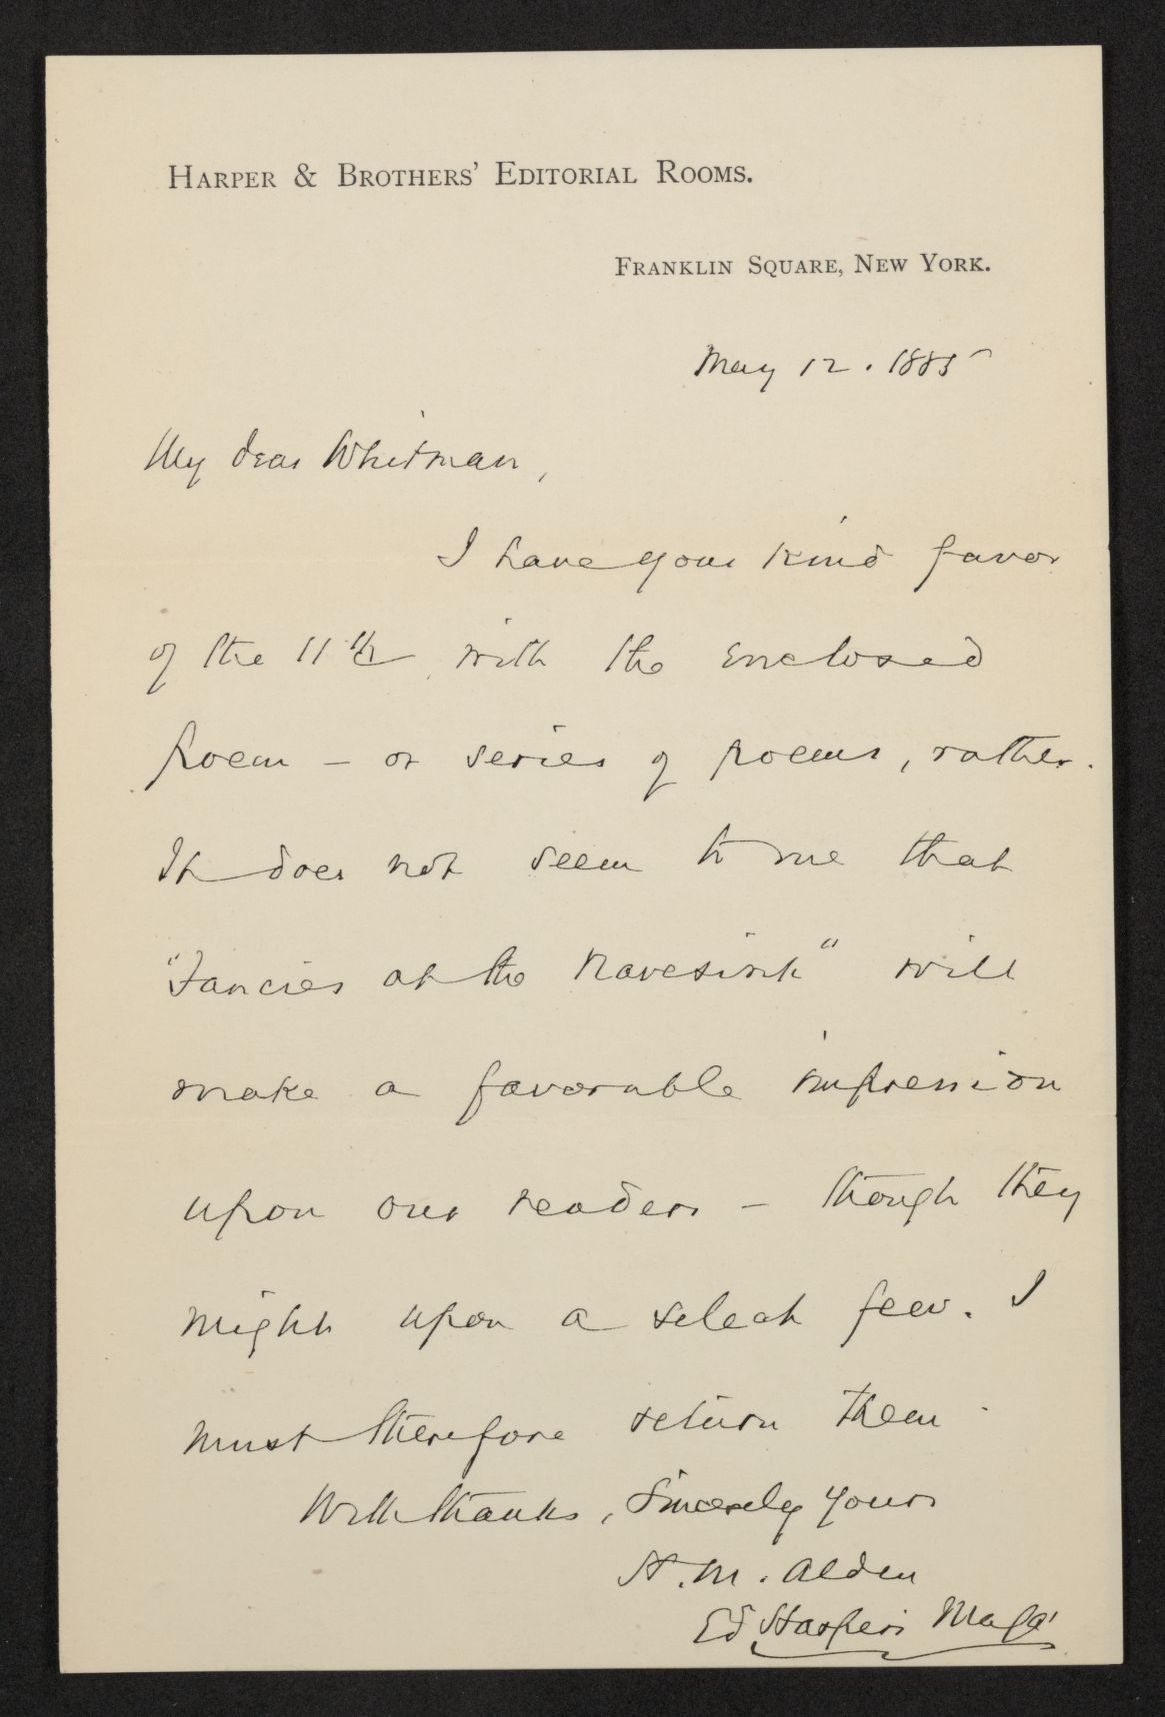 HARPER & BROTHERS' EDITORIAL ROOMS.
FRANKLIN SQUARE, NEW YORK.
May 12. 1885
My dear Whitman,
I have your kind favor
of the 11th with the enclosed
poem – or series of poems, rather.
It does not seem to me that
"Fancies at the Navesink" will
make a favorable impression
upon our readers – though they
might upon a select few. I
must therefore return them.
With thanks, Sincerely Yours
H. M. Alden
Ed Harper's Maga'